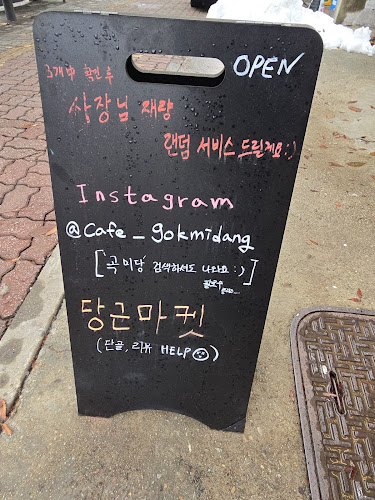 OPEN
3개中 확인 후
사장님 재량
랜덤 서비스 드릴게요 :)
Instagram
@Cafe_gokmidang
[곡미당 검색하셔도 나와요 :)]
팔로우
당근마켓
(단골, 리뷰 HELP)